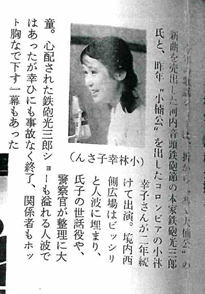 新曲を売出した河内音頭鉄砲節の本家鉄砲光三郎
氏と、昨年〝小楠公〟を出したコロンビアの小林
幸子さんが二年続
けて出演。境内西
側広場はビッシリ
と人波に埋まり、
氏子の世話役や、
警察官が整理に大
童。心配された鉄砲光三郎ショーも溢れる人波で
はあったが幸ひにも事故なく終了、関係者もホッ
ト胸なで下す一幕もあった
(小林幸子さん)